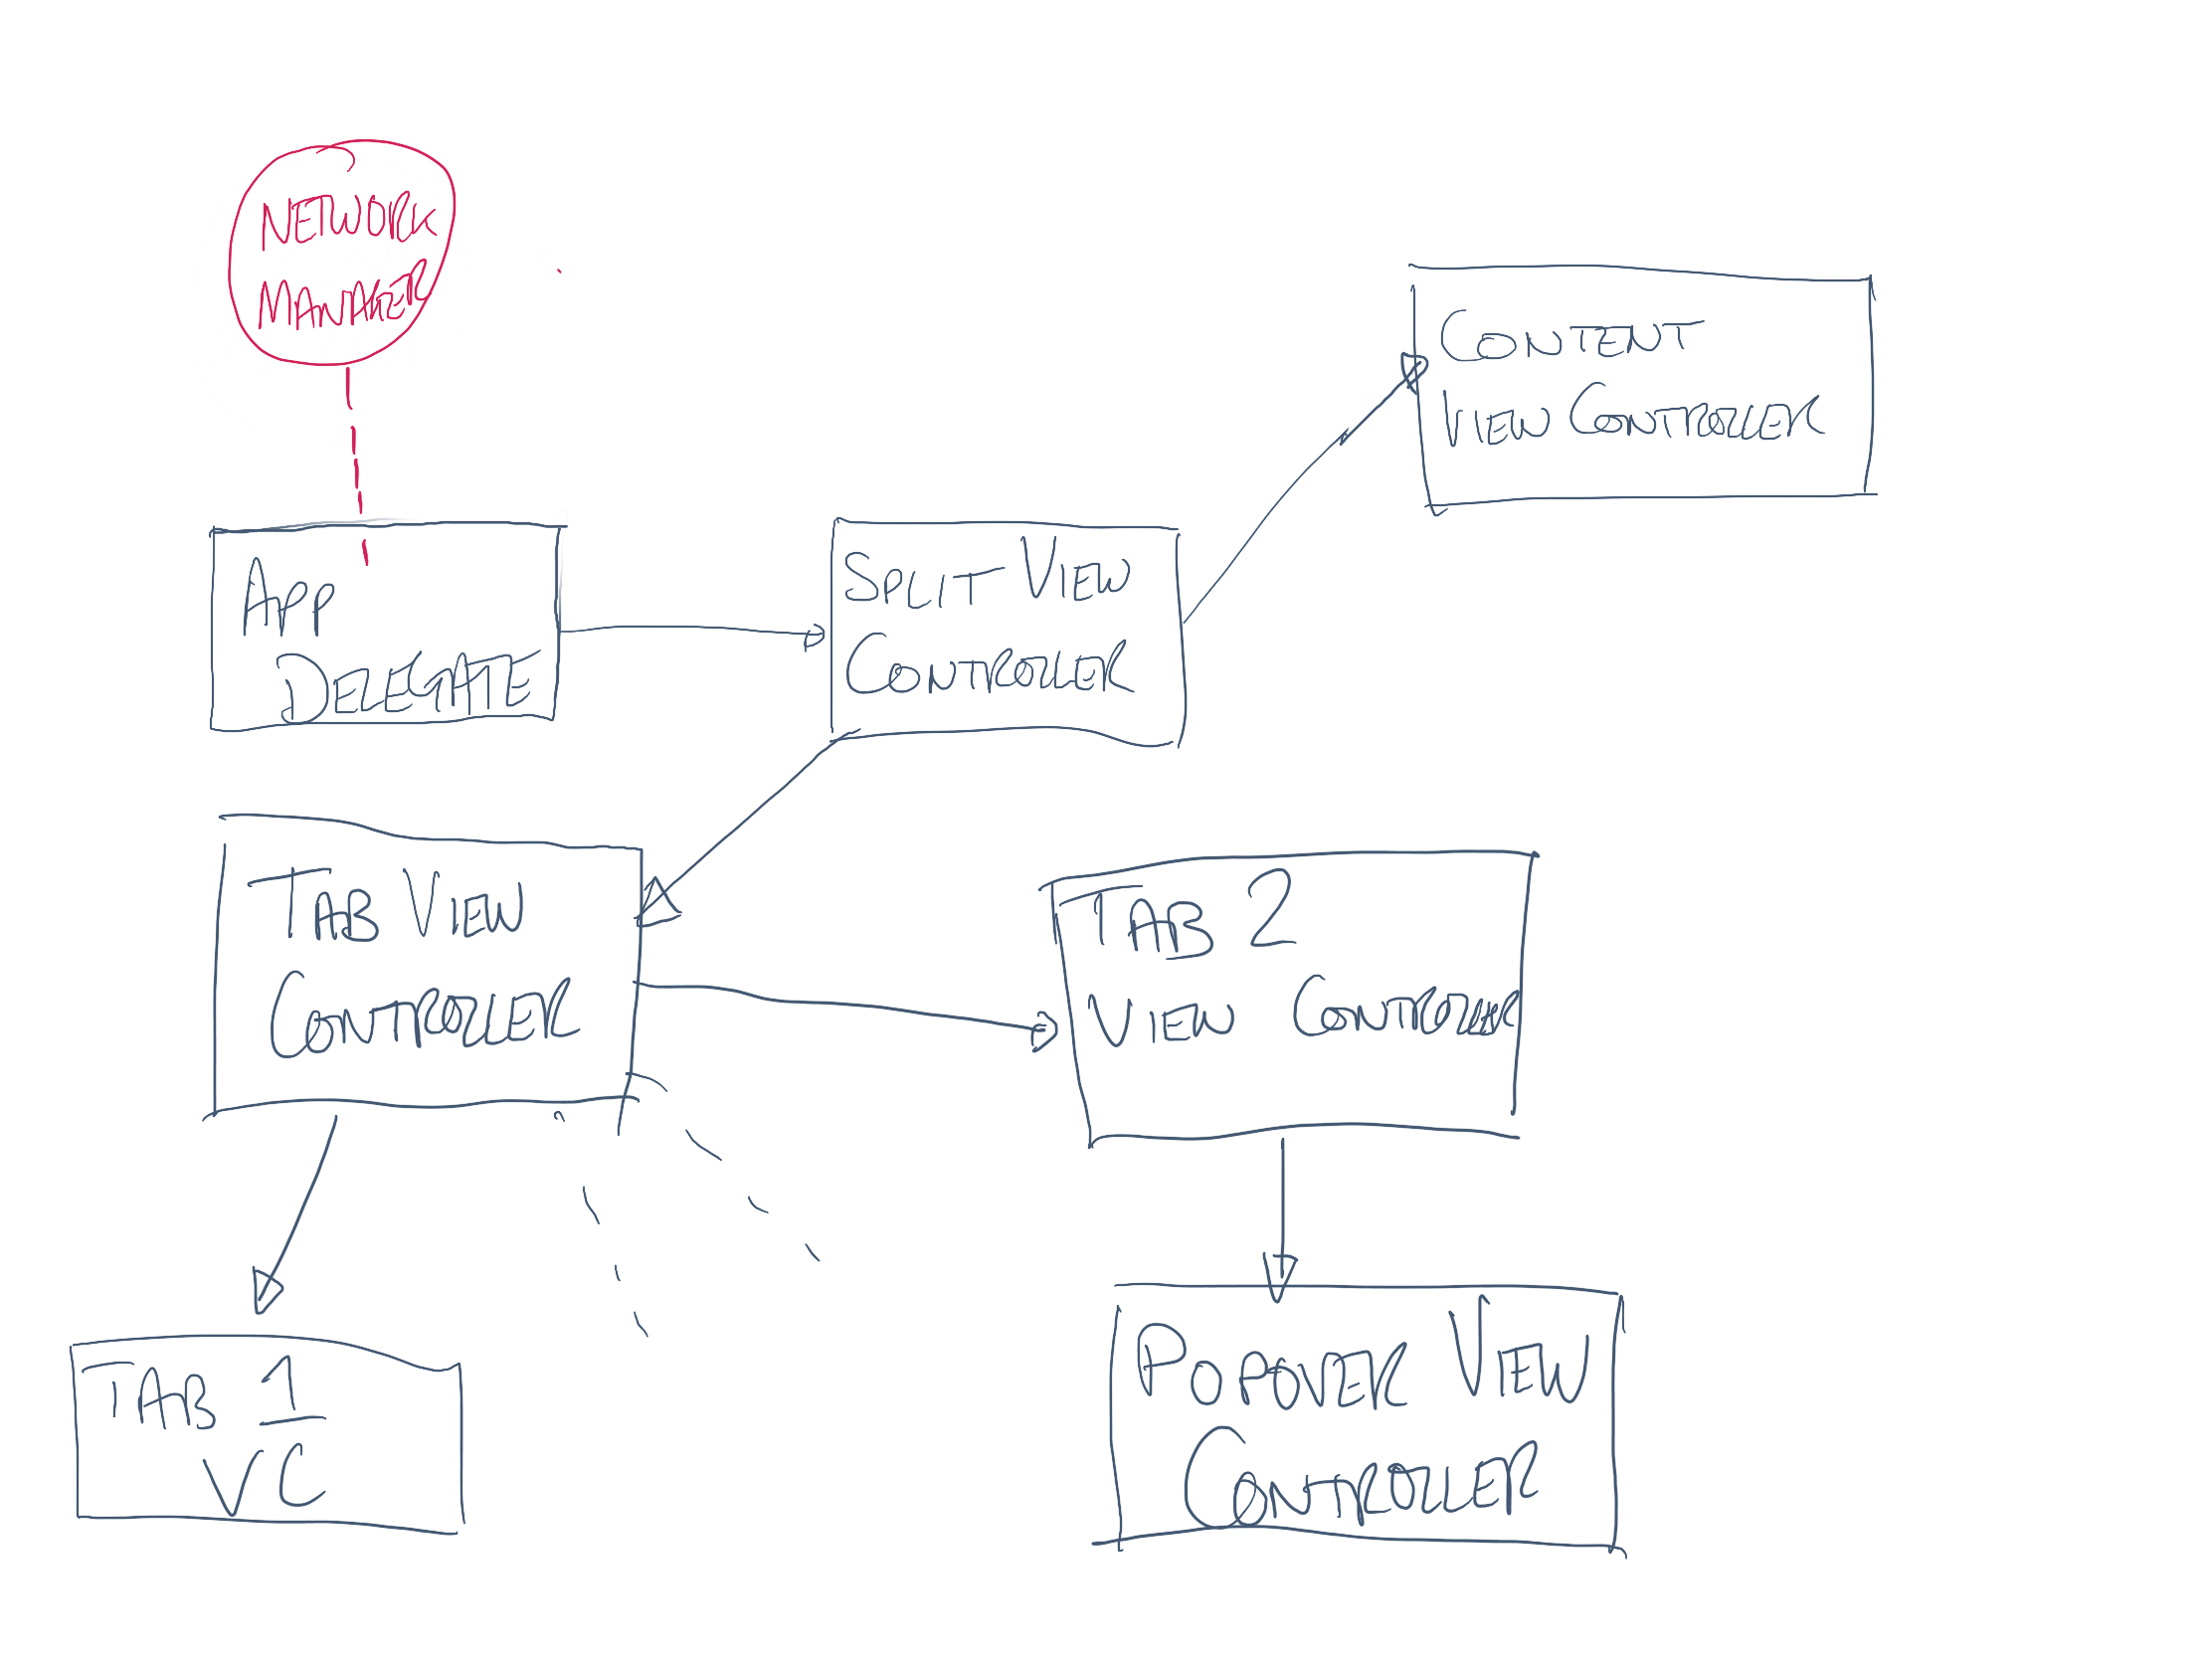 NETWORK
MANAGER
CONTENT
VIEW CONTROLLER
APP
DELEGATE
SPLIT VIEW
CONTROLLER
TAB VIEW
CONTROLLER
TAB 2
VIEW CONTROLLER
TAB 1
VC
POPOVER VIEW
CONTROLLER